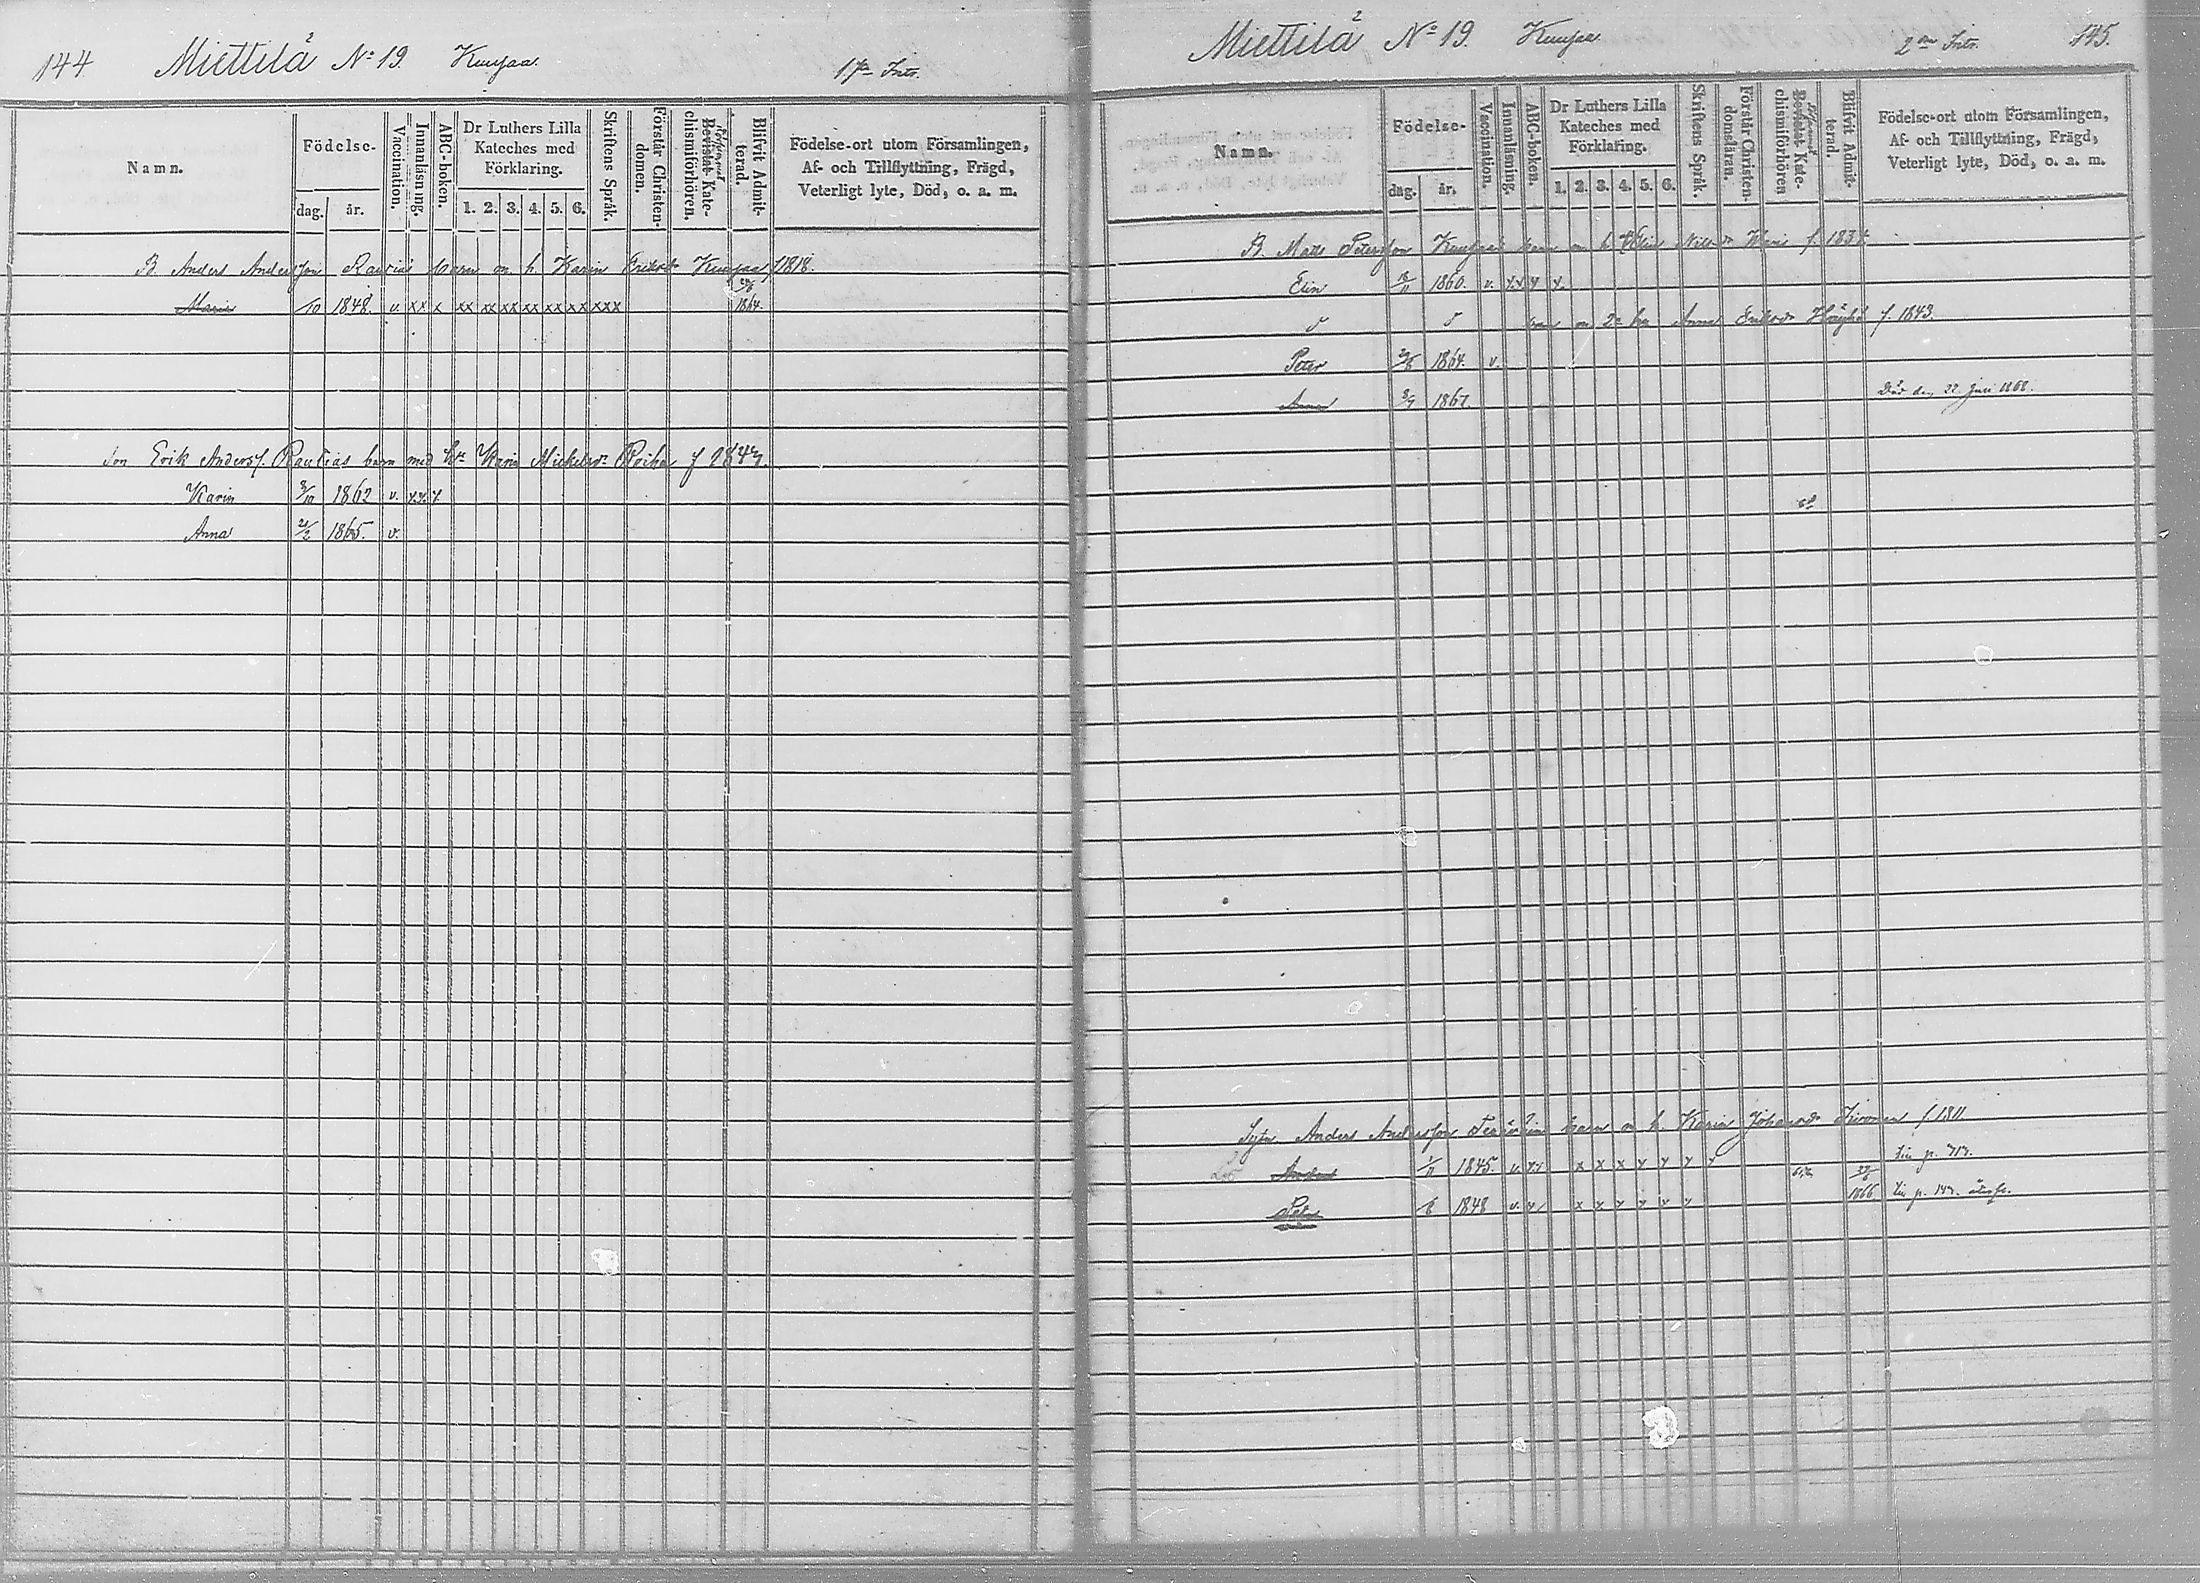 144 Miettilä No 19. Kuujaa. 1sta Inteck.
Namn.
Födelse-
dag.
år.
Vaccination.
Innanläsning.
ABC-boken.
Dr Luthers Lilla
Kateches med
Förklaring.
1. 2. 3. 4. 5. 6.
Skriftens Språk.
Förstår Christen-
domen.
Bevistat Kate-
chismiförhören.
Blifvit Admit-
terad.
Födelse-ort utom Församlingen,
Af- och Tillflyttning, Frägd,
Veterligt lyte, Död, o. a. m.
B. Anders Andersson Rautias barn m. h. Karin Eriksdr Kuujaa f 1818.
Maria 10 1848. v. xx x xx xx xx xx xx xx xxx 1864.
Son Erik Anderss. Rautias barn med h. Karin Mickelsdr Roiha f
Karin 3/10 1862 v. x.x. x.
Anna 21/2 1865. v.
Miettilä No 19. Kuujaa 145.
Namn.
Födelse-
dag.
år.
Vaccination.
Innanläsning.
ABC-boken.
Dr Luthers Lilla
Kateches med
Förklaring.
1. 2. 3. 4. 5. 6.
Skriftens Språk.
Förstår Christen-
domsläran.
Bevistat Kate-
chismiförhören
Blifvit Admit-
terad.
Födelse-ort utom Församlingen,
Af- och Tillflyttning, Frägd,
Veterligt lyte, Död, o. a. m.
B. Matts Petersson Kuujaas barn m. h. Elin Nilsdr f. 1834
Elin 1860. v. x.x x x.
barn m 2a h. Anna Eriksdr f. 1843.
Peter 1864. v.
Anna 3/7 1867. Död den 22 Juni 1868.
Anders Andersson barn m h. Karin Johansdr f. 1811.
Anders 1/11 1845. v. x x x x x x x x
Peter 6 1848 v. x x x x x x x x 1866